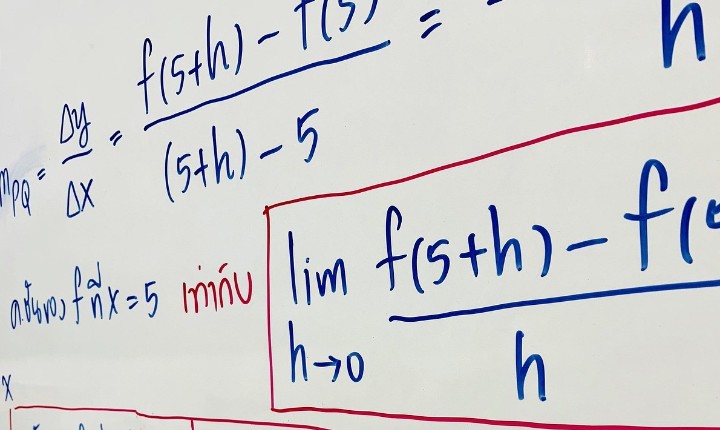 m_PQ = Δy/Δx = (f(5+h) - f(5))/((5+h) - 5) =
h
f ที่ x = 5 เท่ากับ lim h→0 (f(5+h) - f(
h
x